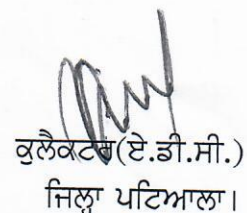 ਕੁਲੈਕਟਰ(ਏ.ਡੀ.ਸੀ.)
ਜਿਲ੍ਹਾ ਪਟਿਆਲਾ।